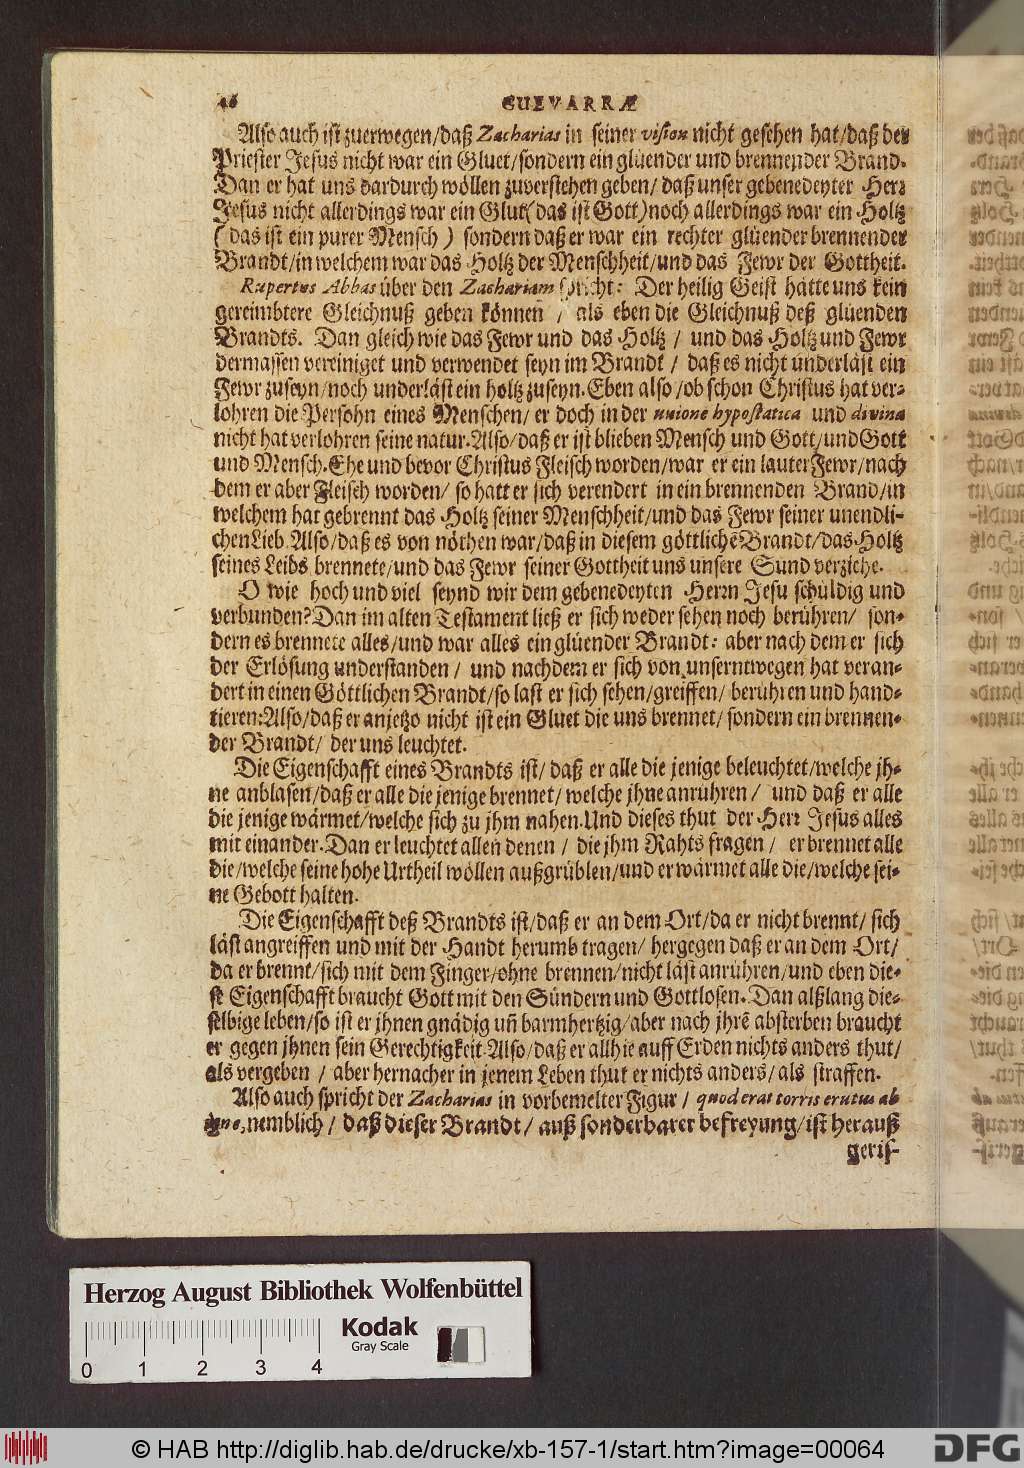 46
GUEVARRÆ
Also auch ist zuerwegen/daß Zacharias in seiner vision nicht gesehen hat/daß der
Priester Jesus nicht war ein Gluet/sondern ein glüender und brennender Brand.
Dan er hat uns dardurch wöllen zuverstehen geben/ daß unser gebenedeyter Herr
Jesus nicht allerdings war ein Glut(das ist Gott)noch allerdings war ein Holtz
( das ist ein purer Mensch ) sondern daß er war ein rechter glüender brennender
Brandt/in welchem war das Holtz der Menschheit/und das Fewr der Gottheit.
Rupertus Abbas über den Zachariam spricht: Der heilig Geist hätte uns kein
gereimbtere Gleichnuß geben können / als eben die Gleichnuß deß glüenden
Brandts. Dan gleich wie das Fewr und das Holtz / und das Holtz und Fewr
dermassen vereiniget und verwendet seyn im Brandt / daß es nicht underläst ein
Fewr zuseyn/noch underläst ein holtz zuseyn.Eben also/ob schon Christus hat ver-
lohren die Persohn eines Menschen/ er doch in der unione hypostatica und divina
nicht hat verlohren seine natur.Also/daß er ist blieben Mensch und Gott/und Gott
und Mensch.Ehe und bevor Christus Fleisch worden/war er ein lauter Fewr/nach
dem er aber Fleisch worden/ so hatt er sich verendert in ein brennenden Brand/in
welchem hat gebrennt das Holtz seiner Menschheit/und das Fewr seiner unendli-
chen Lieb.Also/daß es von nöthen war/daß in diesem göttlichē Brandt/das Holtz
seines Leibs brennete/und das Fewr seiner Gottheit uns unsere Sund verziche.
O wie hoch und viel seynd wir dem gebenedeyten Herrn Jesu schüldig und
verbunden?Dan im alten Testament ließ er sich weder sehen noch berühren/ son-
dern es brennete alles/und war alles ein glüender Brandt: aber nach dem er sich
der Erlösung understanden / und nachdem er sich von unserntwegen hat veran-
dert in einen Göttlichen Brandt/so last er sich sehen/greiffen/ berühren und hand-
tieren:Also/daß er anjetzo nicht ist ein Gluet die uns brennet/ sondern ein brennen-
der Brandt/ der uns leuchtet.
Die Eigenschafft eines Brandts ist/ daß er alle die jenige beleuchtet/welche jh-
ne anblasen/daß er alle die jenige brennet/ welche jhne anrühren / und daß er alle
die jenige wärmet/welche sich zu jhm nahen.Und dieses thut der Herr Jesus alles
mit einander.Dan er leuchtet allen denen / die jhm Rahts fragen / er brennet alle
die/welche seine hohe Urtheil wöllen außgrüblen/und er wärmet alle die/welche sei-
ne Gebott halten.
Die Eigenschafft deß Brandts ist/daß er an dem Ort/da er nicht brennt/ sich
läst angreiffen und mit der Handt herumb tragen/ hergegen daß er an dem Ort/
da er brennt/sich mit dem Finger/ohne brennen/nicht läst anrühren/und eben die-
se Eigenschafft braucht Gott mit den Sündern und Gottlosen.Dan alßlang die-
selbige leben/so ist er jhnen gnädig uñ barmhertzig/aber nach jhrē absterben braucht
er gegen jhnen sein Gerechtigkeit.Also/daß er allhie auff Erden nichts anders thut/
als vergeben / aber hernacher in jenem Leben thut er nichts anders/als straffen.
Also auch spricht der Zacharias in vorbemelter Figur / quod erat torris erutus ab
igne, nemblich/ daß dieser Brandt/ auß sonderbarer befreyung/ist herauß
geris-
Herzog August Bibliothek Wolfenbüttel
Kodak
Gray Scale
0 1 2 3 4
© HAB http://diglib.hab.de/drucke/xb-157-1/start.htm?image=00064
DFG